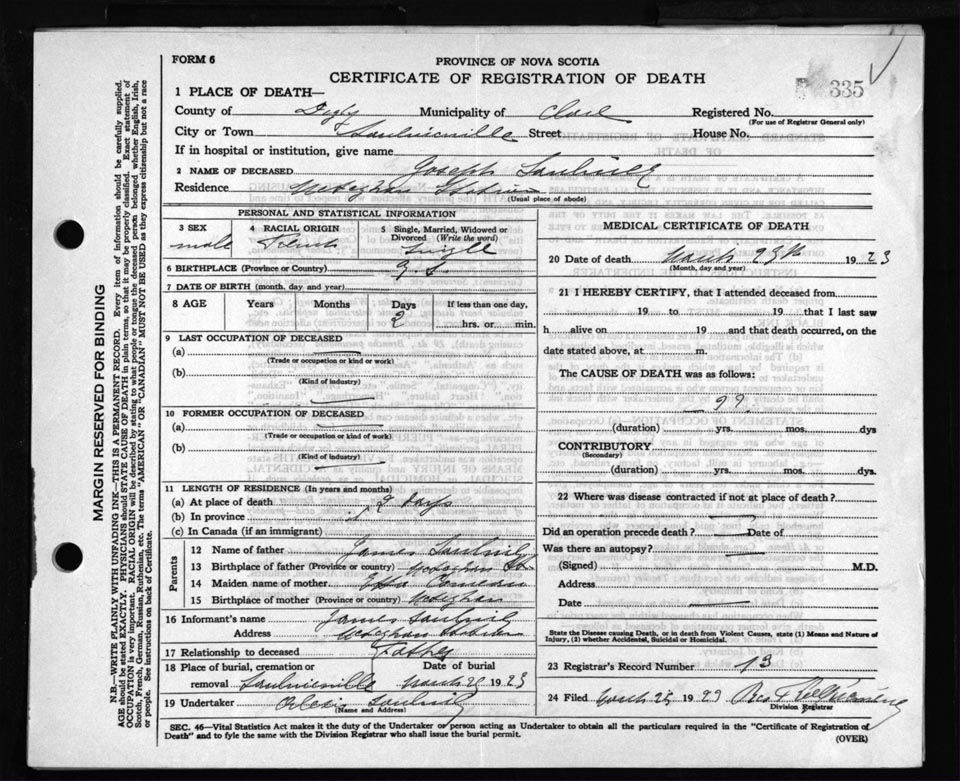 FORM 6
PROVINCE OF NOVA SCOTIA
CERTIFICATE OF REGISTRATION OF DEATH
335
1 PLACE OF DEATH—
County of Digby Municipality of Clare Registered No.
(For use of Registrar General only)
City or Town Saulnierville Street House No.
If in hospital or institution, give name
2 NAME OF DECEASED Joseph
Residence Meteghan Station
(Usual place of abode)
PERSONAL AND STATISTICAL INFORMATION
3 SEX 4 RACIAL ORIGIN 5 Single, Married, Widowed or Divorced (Write the word)
male French Single
6 BIRTHPLACE (Province or Country)
7 DATE OF BIRTH (month, day and year)
8 AGE Years Months Days If less than one day,
2 hrs. or min.
9 LAST OCCUPATION OF DECEASED
(a)
(Trade or occupation or kind or work)
(b)
(Kind of industry)
10 FORMER OCCUPATION OF DECEASED
(a)
(Trade or occupation or kind or work)
(b)
(Kind of industry)
11 LENGTH OF RESIDENCE (In years and months)
(a) At place of death 2 days
(b) In province
(c) In Canada (if an immigrant)
Parents
12 Name of father James
13 Birthplace of father (Province or country) Meteghan St
14 Maiden name of mother Comeau
15 Birthplace of mother (Province or country) Meteghan
16 Informant's name James
Address Meteghan Station
17 Relationship to deceased Father
18 Place of burial, cremation or removal Saulnierville Date of burial March 19
19 Undertaker
(Name and Address)
MEDICAL CERTIFICATE OF DEATH
20 Date of death March 19 23
(Month, day and year)
21 I HEREBY CERTIFY, that I attended deceased from
19 to 19 that I last saw
h alive on 19 and that death occurred, on the
date stated above, at m.
The CAUSE OF DEATH was as follows:
(duration) yrs. mos. dys
CONTRIBUTORY
(Secondary)
(duration) yrs. mos. dys.
22 Where was disease contracted if not at place of death?
Did an operation precede death? Date of
Was there an autopsy?
(Signed) M.D.
Address
Date
State the Disease causing Death, or in death from Violent Causes, state (1) Means and Nature of Injury, (2) whether Accidental, Suicidal or Homicidal.
23 Registrar's Record Number 13
24 Filed March 19
Division Registrar
SEC. 46—Vital Statistics Act makes it the duty of the Undertaker or person acting as Undertaker to obtain all the particulars required in the "Certificate of Registration of
Death" and to fyle the same with the Division Registrar who shall issue the burial permit.
(OVER)
MARGIN RESERVED FOR BINDING
N.B.—WRITE PLAINLY WITH UNFADING INK—THIS IS A PERMANENT RECORD. Every item of information should be carefully supplied.
AGE should be stated EXACTLY. PHYSICIANS should STATE CAUSE OF DEATH in plain terms, so that it may be properly classified. Exact statement of
OCCUPATION is very important. RACIAL ORIGIN will be described by stating to what people or tongue the deceased person belonged whether English, Irish,
Scotch, French, German, Russian, Ruthenian, etc. The terms "AMERICAN" OR "CANADIAN" MUST NOT BE USED as they express citizenship but not a race
or people. See instructions on back of Certificate.